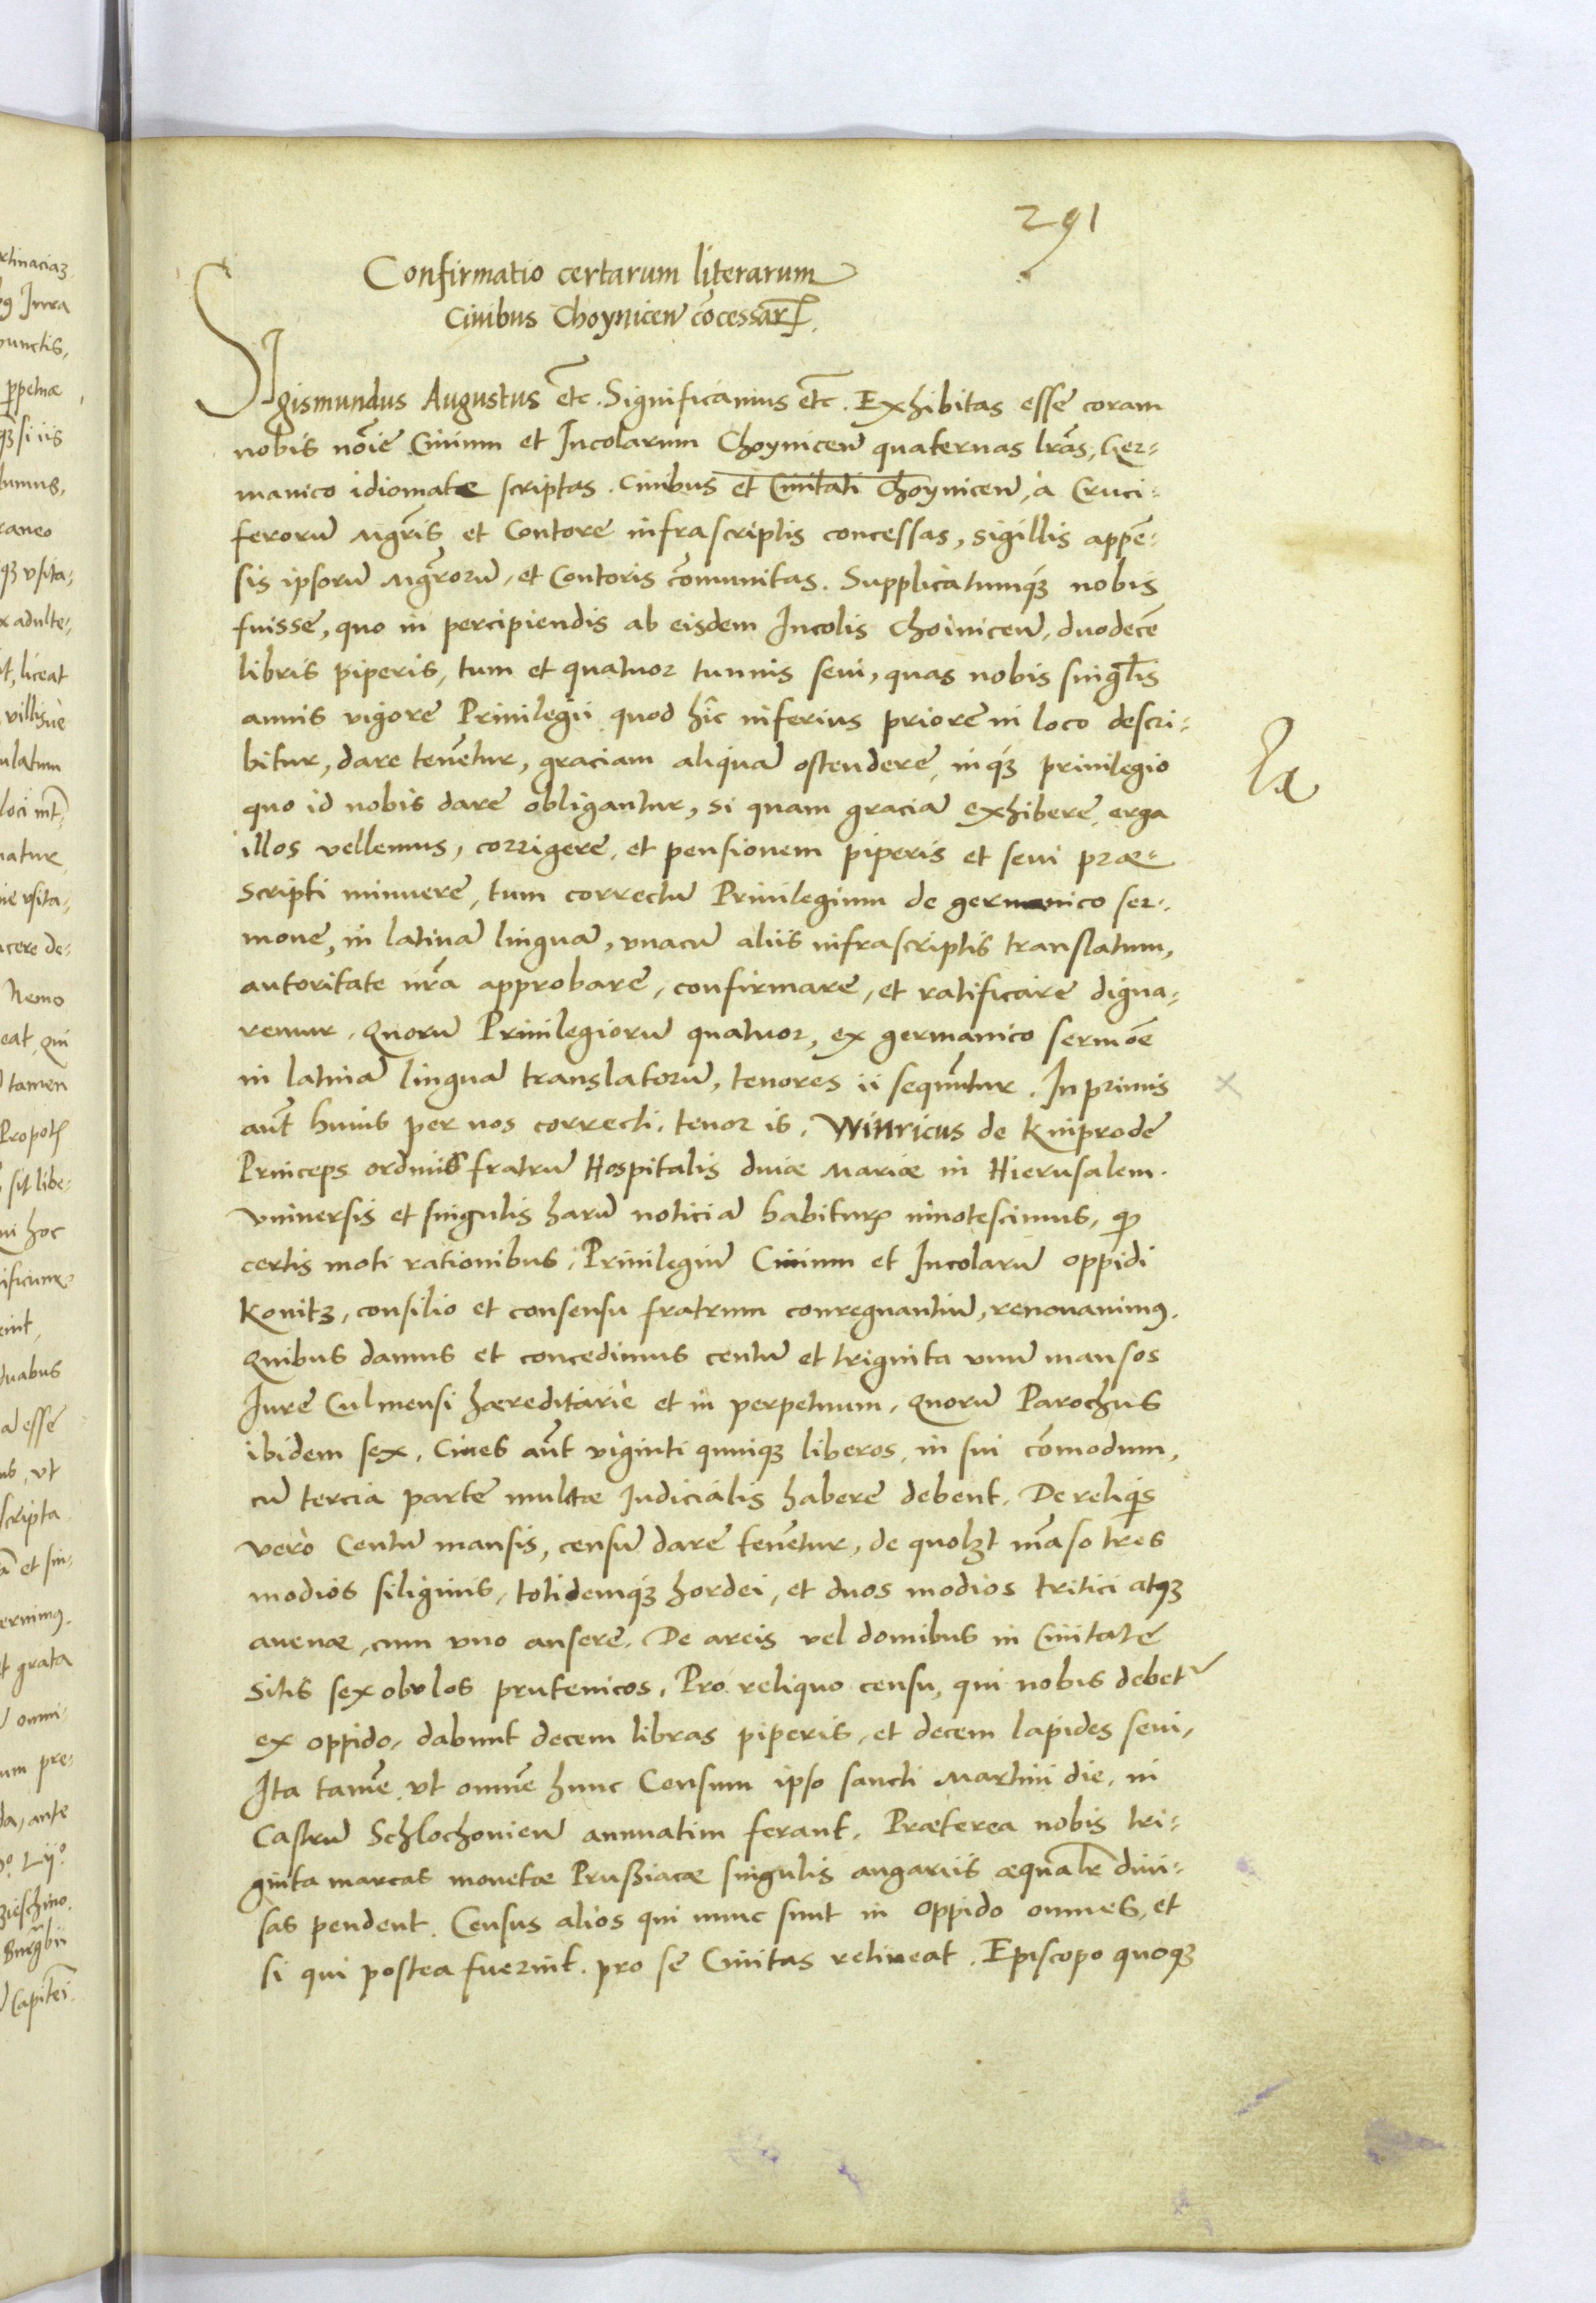 291
Confirmatio certarum literarum
Ciuibus Choynicen̄ cōcessar.
SIgismundus Augustus etc. Significamus etc. Exhibitas esse coram
nobis nōie Ciuium et Incolarum Choynicen̄ quaternas lrās, Ger-
manico idiomate scriptas. Ciuibus et Ciuitati Choynicen̄, à Cruci-
ferorū Mgrīs et Contore infrascriptis concessas, sigillis appē-
sis ipsorū Mgrōrū, et Contoris cōmunitas. Supplicatumqȝ nobis
fuisse, quo in percipiendis ab eisdem Incolis Choinicen̄, duodecē
libris piperis, tum et quatuor tunnis seui, quas nobis singlīs
annis vigore Priuilegii quod hîc inferius priore in loco descri-
bitur, dare tenētur, graciam aliquā ostendere, inqȝ priuilegio
quo id nobis dare obligantur, si quam graciā exhibere erga
illos vellemus, corrigere, et pensionem piperis et seui præ-
scripti minuere, tum correctū Priuilegium de germanico ser-
mone, in latinā linguā, vnacū aliis infrascriptis translatum,
autoritate nrā approbare, confirmare, et ratificare digna-
remur. Quorū Priuilegiorū quatuor, ex germanico sermōe
in latinā linguā translatorū, tenores ii sequūtur. In primis
aūt huius per nos correcti, tenor is. Winricus de Kniprode
Princeps ordinis fratrū Hospitalis diuæ Mariæ in Hierusalem.
Vniuersis et singulis harū noticiā habituris innotescimus, qd
certis moti rationibus, Priuilegiū Ciuium et Incolarū oppidi
Konitz, consilio et consensu fratrum conregnantiū, renouauimus.
Quibus damus et concedimus centū et triginta vnū mansos
Iure Culmensi hæreditariè et in perpetuum. Quorū Parochus
ibidem sex, Ciues aūt viginti quinqȝ liberos, in sui cōmodum,
cū tercia parte multæ Iudicialis habere debent. De reliqis
vero Centū mansis, censū dare tenētur, de quolȝt māso tres
modios siliginis, totidemqȝ hordei, et duos modios tritici atqȝ
auenæ, cum vno ansere. De areis vel domibus in Ciuitate
sitis sex obulos prutenicos. Pro reliquo censu, qui nobis debet
ex oppido, dabunt decem libras piperis, et decem lapides seui,
Ita tamē vt omnē hunc Censum ipso sancti Martini die, in
Castrū Schlochouien̄ annuatim ferant. Præterea nobis tri-
ginta marcas monetæ Prussiacæ singulis angariis æqualr̄ diui-
sas pendent. Census alios qui nunc sunt in oppido omnes, et
si qui postea fuerint, pro se Ciuitas retineat. Episcopo quoqȝ